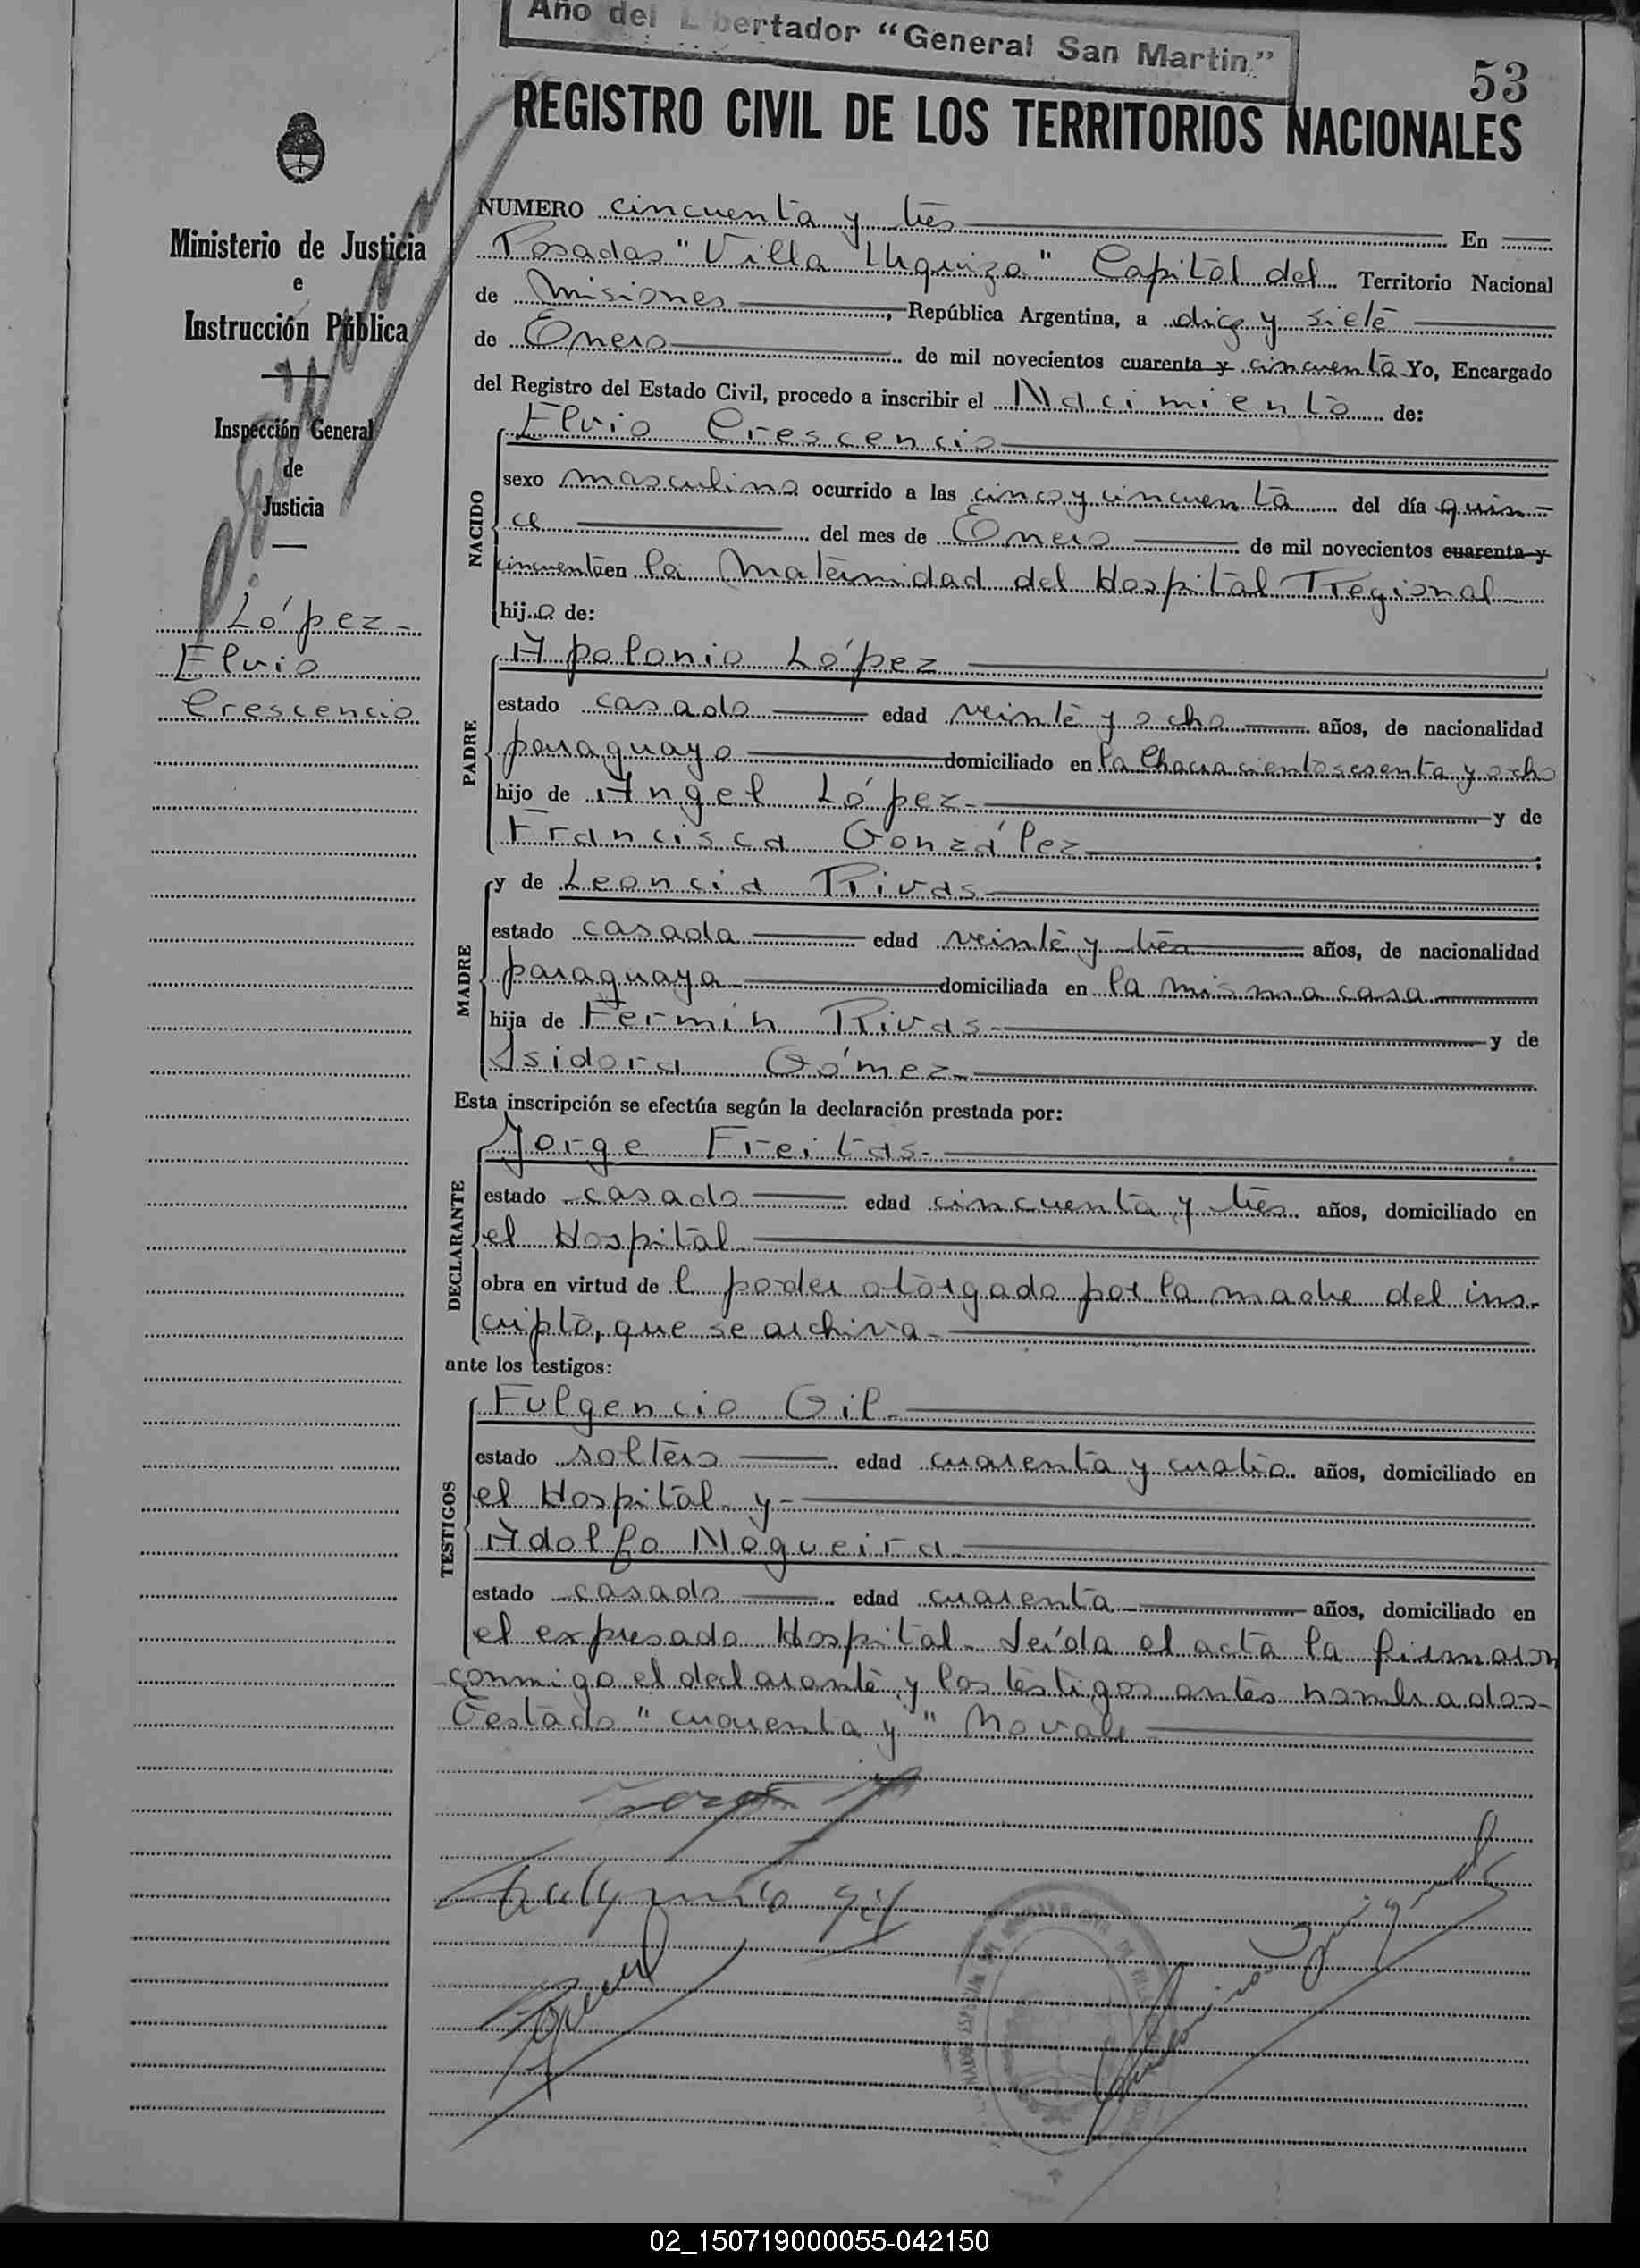 Año del Libertador “General San Martin”
53
REGISTRO CIVIL DE LOS TERRITORIOS NACIONALES
Ministerio de Justicia
e
Instrucción Pública
Inspección General
de
Justicia
López-
Elvio
Crescencio
NUMERO cincuenta y tres En
Posadas "Villa Urquiza" Capital del Territorio Nacional
de Misiones, República Argentina, a diez y siete
de Enero de mil novecientos cuarenta y cincuenta Yo, Encargado
del Registro del Estado Civil, procedo a inscribir el Nacimiento de:
NACIDO
Elvio Crescencio
sexo masculino ocurrido a las cinco y cincuenta del día quin-
ce del mes de Enero de mil novecientos cuarenta y
cincuenta en la Maternidad del Hospital Regional
hijo de:
PADRE
Apolonio López
estado casado edad veinte y ocho años, de nacionalidad
paraguayo domiciliado en la Chacra ciento sesenta y ocho
hijo de Angel López- y de
Francisca González ;
MADRE
y de Leoncia Rivas
estado casada edad veinte y tres años, de nacionalidad
paraguaya domiciliada en la misma casa
hija de Fermín Rivas- y de
Isidora Gómez-
Esta inscripción se efectúa según la declaración prestada por:
DECLARANTE
Jorge Freitas-
estado casado edad cincuenta y tres años, domiciliado en
el Hospital-
obra en virtud de l poder otorgado por la madre del ins-
cripto, que se archiva-
ante los testigos:
TESTIGOS
Fulgencio Gil-
estado soltero edad cuarenta y cuatro años, domiciliado en
el Hospital y-
Adolfo Nogueira-
estado casado edad cuarenta años, domiciliado en
el expresado Hospital- Leída el acta la firmaron
conmigo el declarante y los testigos antes nombrados-
Testado "cuarenta y" No vale
Fulgencio Gil
02_150719000055-042150